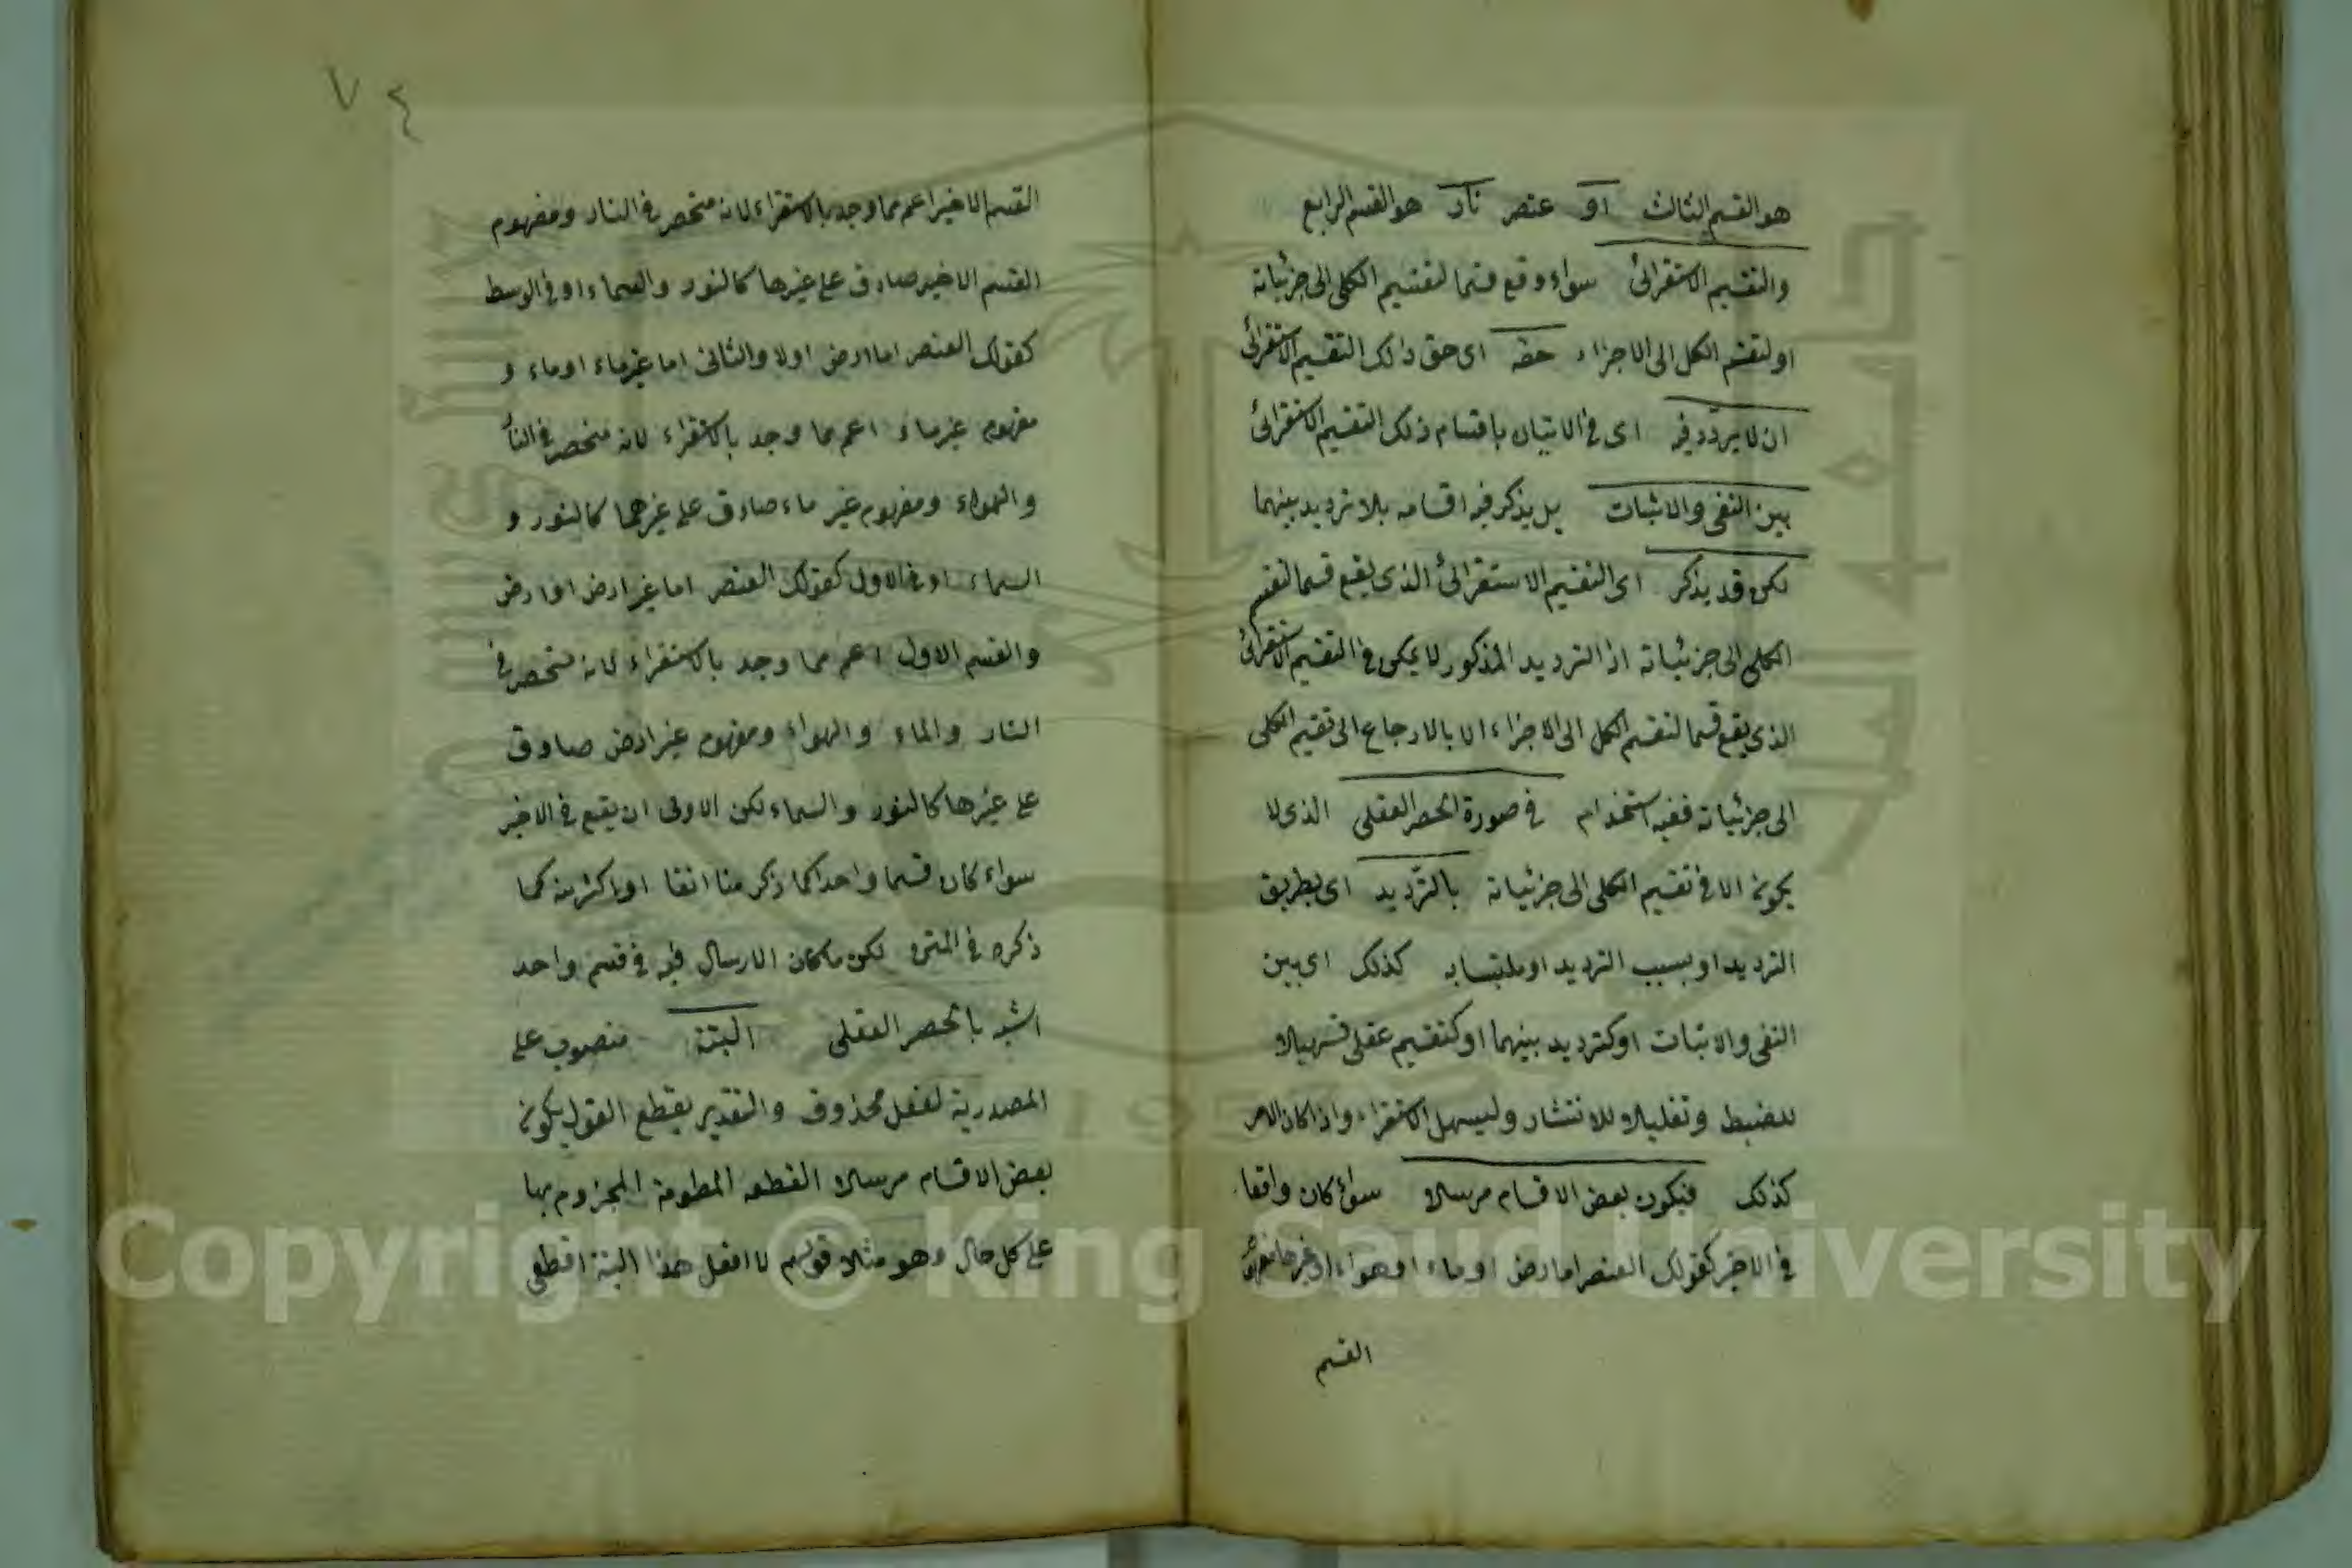 هو القسم الثالث او عنصر نار هو القسم الرابع
والتقسيم الاستقرائى سواء وقع قسما لتقسيم الكلى الى جزئياته
او لتقسيم الكل الى الاجزاء حقه اى حق ذلك التقسيم الاستقرائى
ان لا يردد فيه اى فى الاتيان باقسام ذلك التقسيم الاستقرائى
بين النفى والاثبات بل يذكر فيه اقسامه بلا ترديد بينهما
لكن قد يذكر اى التقسيم الاستقرائى الذى يقع قسما لتقسيم
الكلى الى جزئياته اذ الترديد المذكور لا يمكن فى التقسيم الاستقرائى
الذى يقع قسما لتقسيم الكل الى الاجزاء الا بالارجاع الى تقسيم الكلى
الى جزئياته ففيه استخدام فى صورة الحصر العقلى الذى لا
يكون الا فى تقسيم الكلى الى جزئياته بالترديد اى بطريق
الترديد او بسبب الترديد او ملتبسا به كذلك اى بين
النفى والاثبات او كترديد بينهما او كتقسيم عقلى تسهيلا
للضبط وتقليلا للانتشار وليسهل الاستقراء واذا كان الامر
كذلك فيكون بعض الاقسام مرسلا سواء كان واقعا
فى الاخير كقولك العنصر اما ارض او ماء او هواء او غيرها
القسم
٧٤
القسم الاخير اعم مما وجد بالاستقراء لانه منحصر فى النار ومفهوم
القسم الاخير صادق على غيرها كالنور والسماء او فى الوسط
كقولك العنصر اما ارض اولا والثانى اما غير ماء او ماء و
مفهوم غير ماء اعم مما وجد بالاستقراء لانه منحصر فى النار
والهواء ومفهوم غير ماء صادق على غيرهما كالنور و
السماء او فى الاول كقولك العنصر اما غير ارض او ارض
والقسم الاول اعم مما وجد بالاستقراء لانه منحصر فى
النار والماء والهواء ومفهوم غير ارض صادق
على غيرها كالنور والسماء لكن الاولى ان يقع فى الاخير
سواء كان قسما واحدا كما ذكرنا انفا او اكثر منه كما
ذكره فى المتن لكن ما كان الارسال فيه فى قسم واحد
اشبه بالحصر العقلى البتة منصوب على
المصدرية لفعل محذوف والتقدير يقطع القول بكون
بعض الاقسام مرسلا القطعه المجزوم بها
على كل حال وهو مثل قولهم لا افعل هذا البتة اقطع
Copyright © King Saud University
جامعة الملك سعود
1957